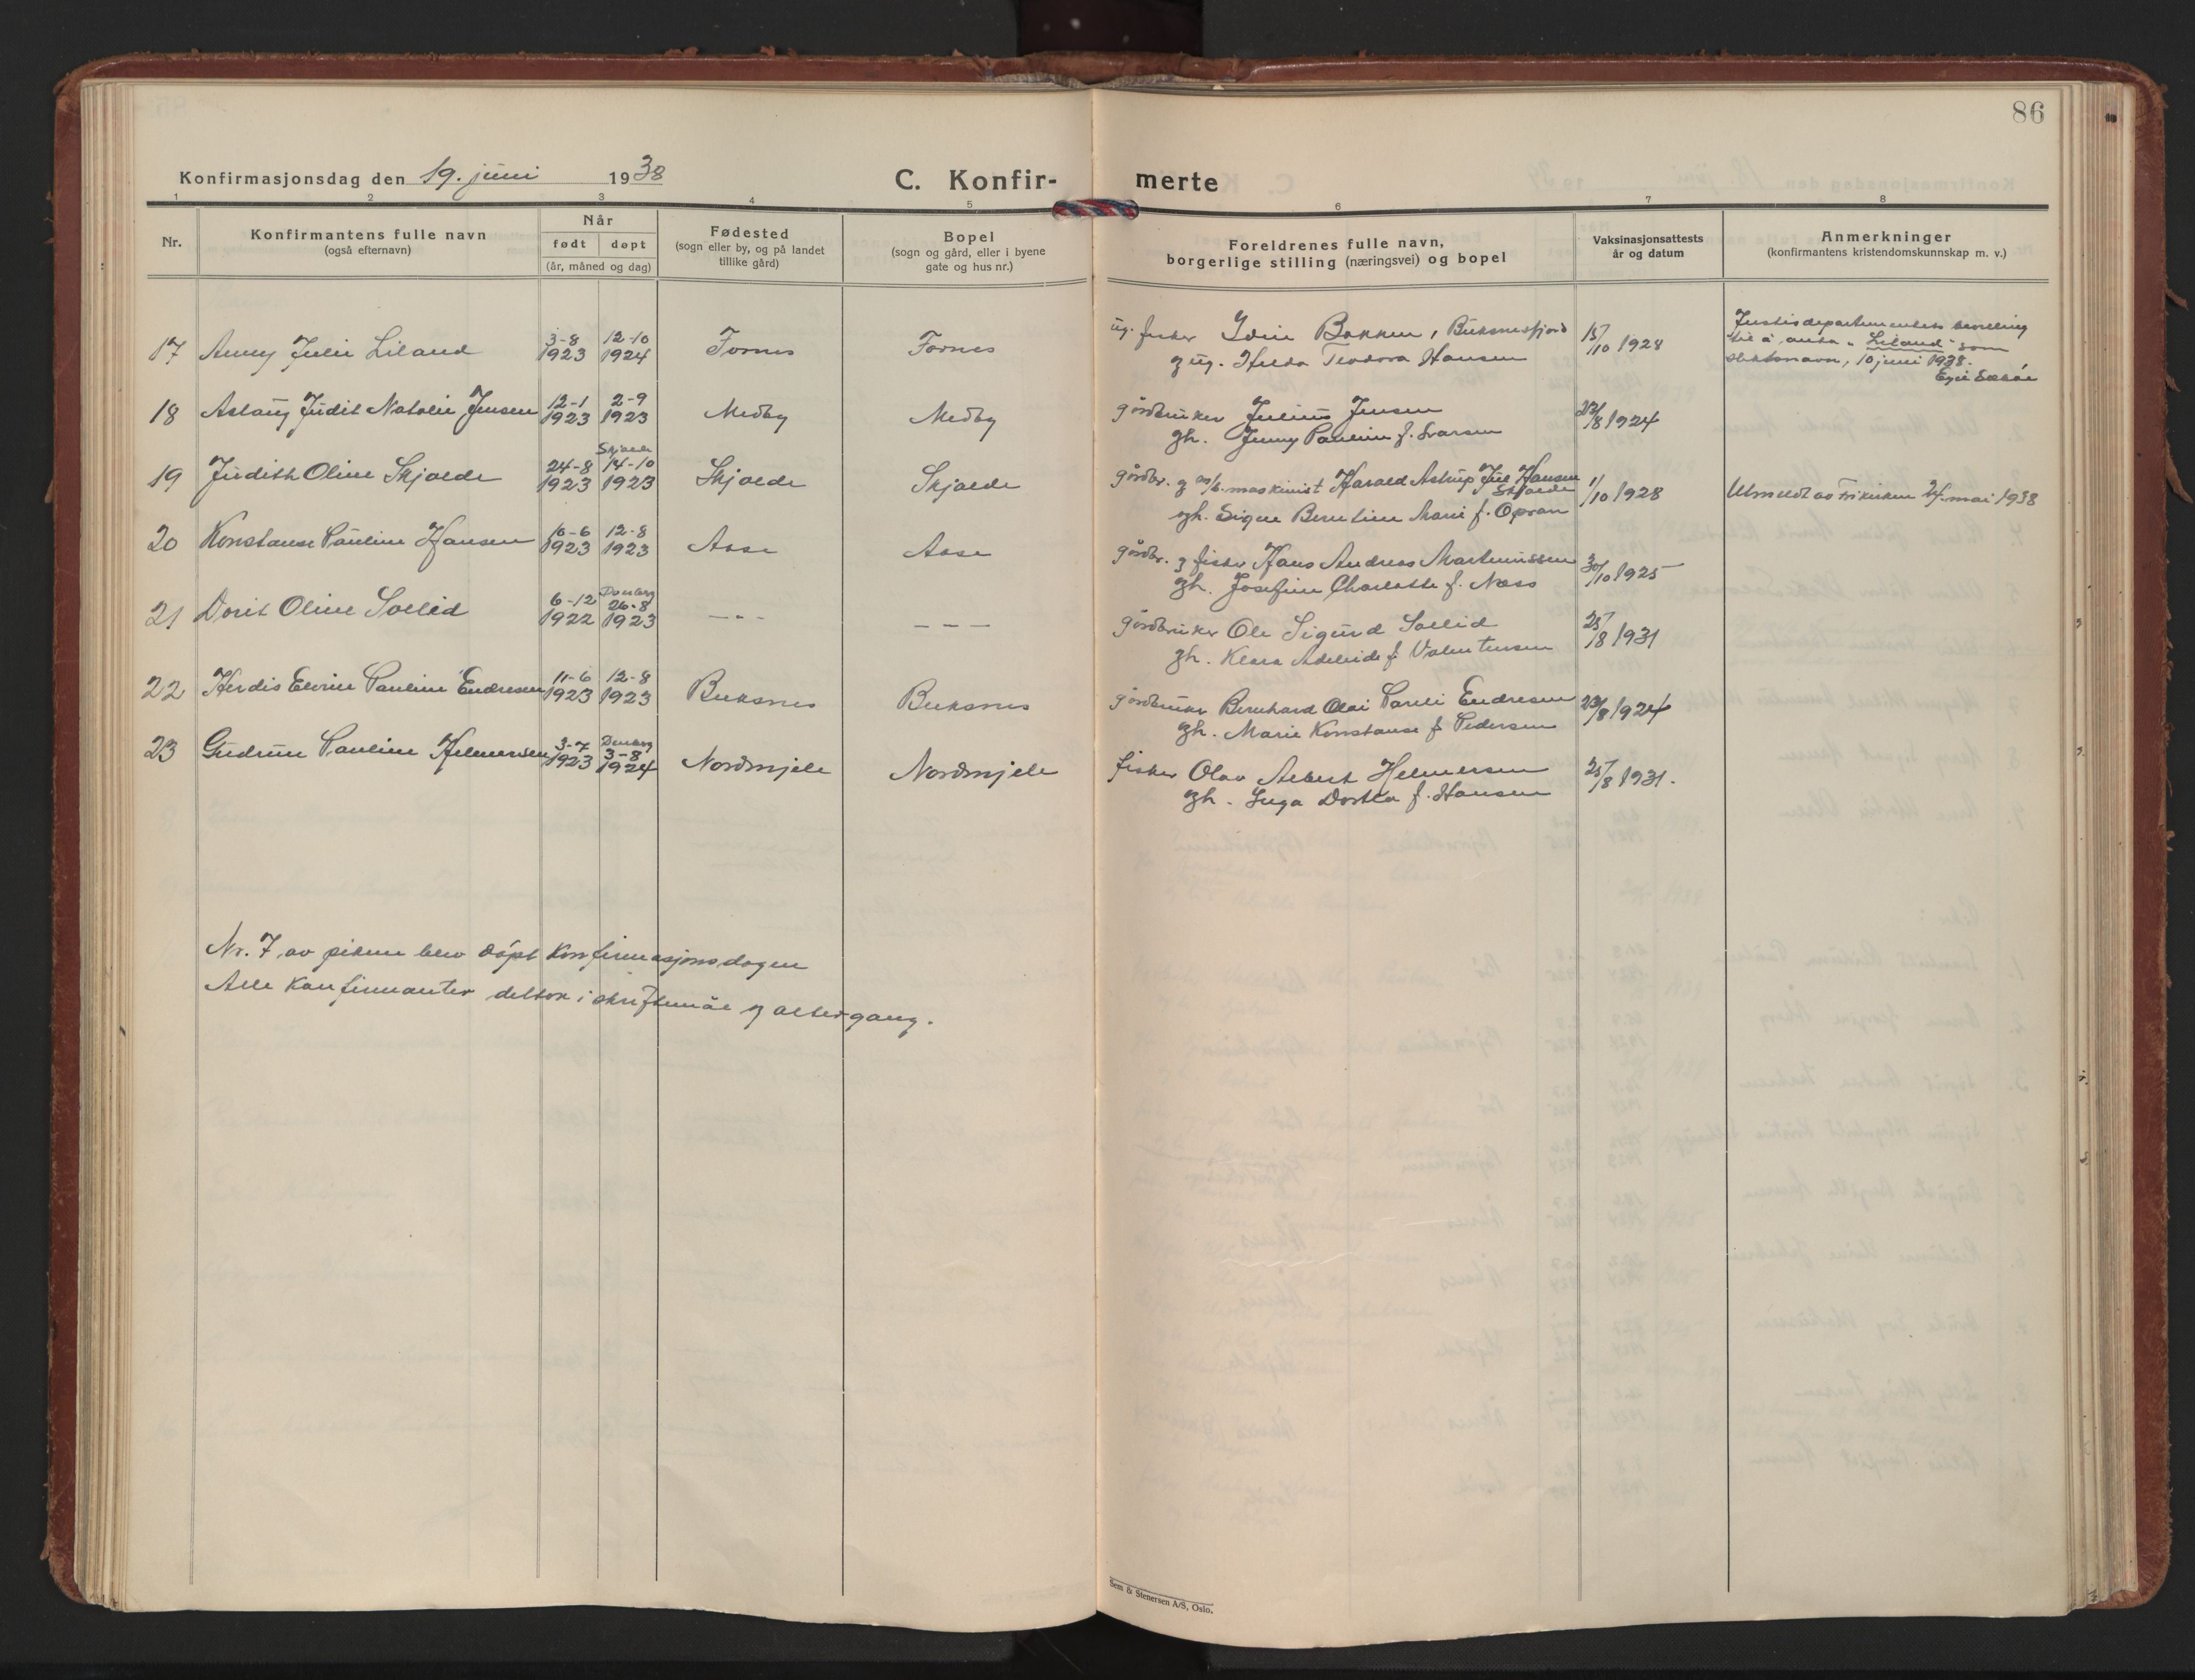 86
Konfirmasjonsdag den 19. juni 1938
C. Konfir-
merte
1 2 3 4 5 6 7 8
Nr.
Konfirmantens fulle navn
(også efternavn)
Når
født døpt
(år, måned og dag)
Fødested
(sogn eller by, og på landet
tillike gård)
Bopel
(sogn og gård, eller i byene
gate og hus nr.)
Foreldrenes fulle navn,
borgerlige stilling (næringsvei) og bopel
Vaksinasjonsattests
år og datum
Anmerkninger
(konfirmantens kristendomskunnskap m. v.)
17 Anny Julie Liland 3-8 1923 12-10 1924 Fornes Fornes
ug. fisker Idin Bakken, Buksnesfjord
og ug. Hilda Teodora Hansen
15/10 1928
Justisdepartementets bevilling
til å anta "Liland" som
slektsnavn, 10 juni 1938.
18 Aslaug Judit Natalie Jensen 12-1 1923 2-9 1923 Medby Medby
gårdbruker Julius Jensen
gh. Jenny Pauline f. Ivarsen
23/8 1924
19 Judith Oline Skjolde 24-8 1923 14-10 1923 Skjolde Skjolde
gårdbr. og m/k. maskinist Harald Astrup Juul Hansen
Skjolde
gh. Signe Berntine Marie f. Opran
1/10 1928
Utmeldt av Frikirken 24. mai 1938
20 Konstanse Pauline Hansen 10-6 1923 12-8 1923 Åse Åse
gårdbr. og fisker Hans Andreas Martinussen
gh. Josefine Charlotte f. Næss
30/10 1925
21 Dorit Oline Sollid 6-12 1922 26-8 1923 --- ---
gårdbruker Ole Sigurd Sollid
gh. Klara Adeleide f. Valentinsen
25/8 1931
22 Herdis Elvine Pauline Endresen 11-6 1923 12-8 1923 Buksnes Buksnes
gårdbruker Bernhard Olai Pareli Endresen
gh. Marie Konstanse f. Pedersen
23/8 1924
23 Gudrun Pauline Helmersen 3-7 1923 3-8 1924 Nordmjele Nordmjele
fisker Olav Albert Helmersen
gh. Inga Dortea f. Hansen
25/8 1931.
Nr. 7 av pikene blev døpt konfirmasjonsdagen
Alle konfirmanter deltok i skriftemål og altergang.
Sem & Stenersen A/S, Oslo.